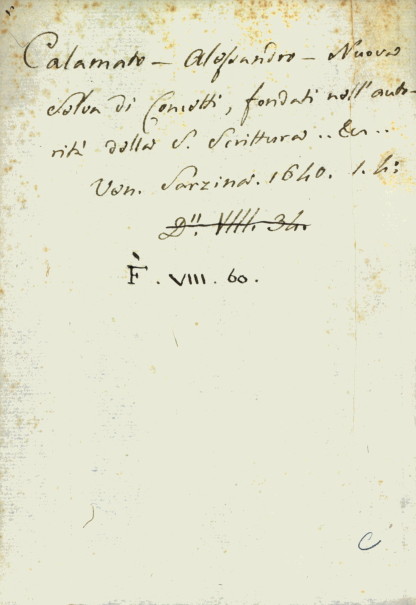 Calamato - Alessandro - Nuova
Selva di Concetti, fondati nell'auto-
rità della S. Scrittura .. &c ..
Ven. Sarzina. 1640. 1. 4:
D". VIII. 34.
F. VIII. 60.
C